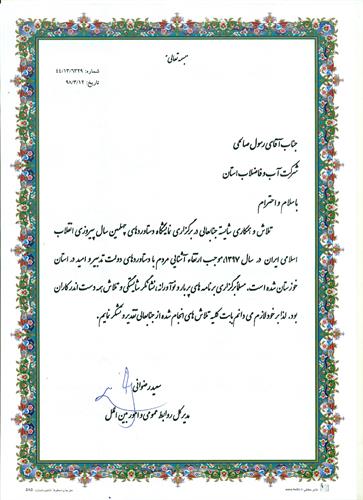 بسمه تعالی
شماره: ۴۴/۱۳/۶۳۲۹
تاریخ: ۹۸/۳/۱۲
جناب آقای رسول صالحی
شرکت آب و فاضلاب استان
با سلام و احترام
تلاش و همکاری شایسته جنابعالی در برگزاری نمایشگاه دستاوردهای چهلمین سال پیروزی انقلاب
اسلامی ایران در سال ۱۳۹۷، موجب ارتقاء آشنایی مردم با دستاوردهای دولت تدبیر و امید در استان
خوزستان شده است. مسلما برگزاری برنامه های پربار و نوآورانه، نشانگر شایستگی و تلاش همه دست اندرکاران
بود. لذا بر خود لازم می دانم بابت کلیه تلاش های انجام شده از جنابعالی تقدیر و تشکر نمایم.
سعید رضوانی
مدیرکل روابط عمومی و امور بین الملل